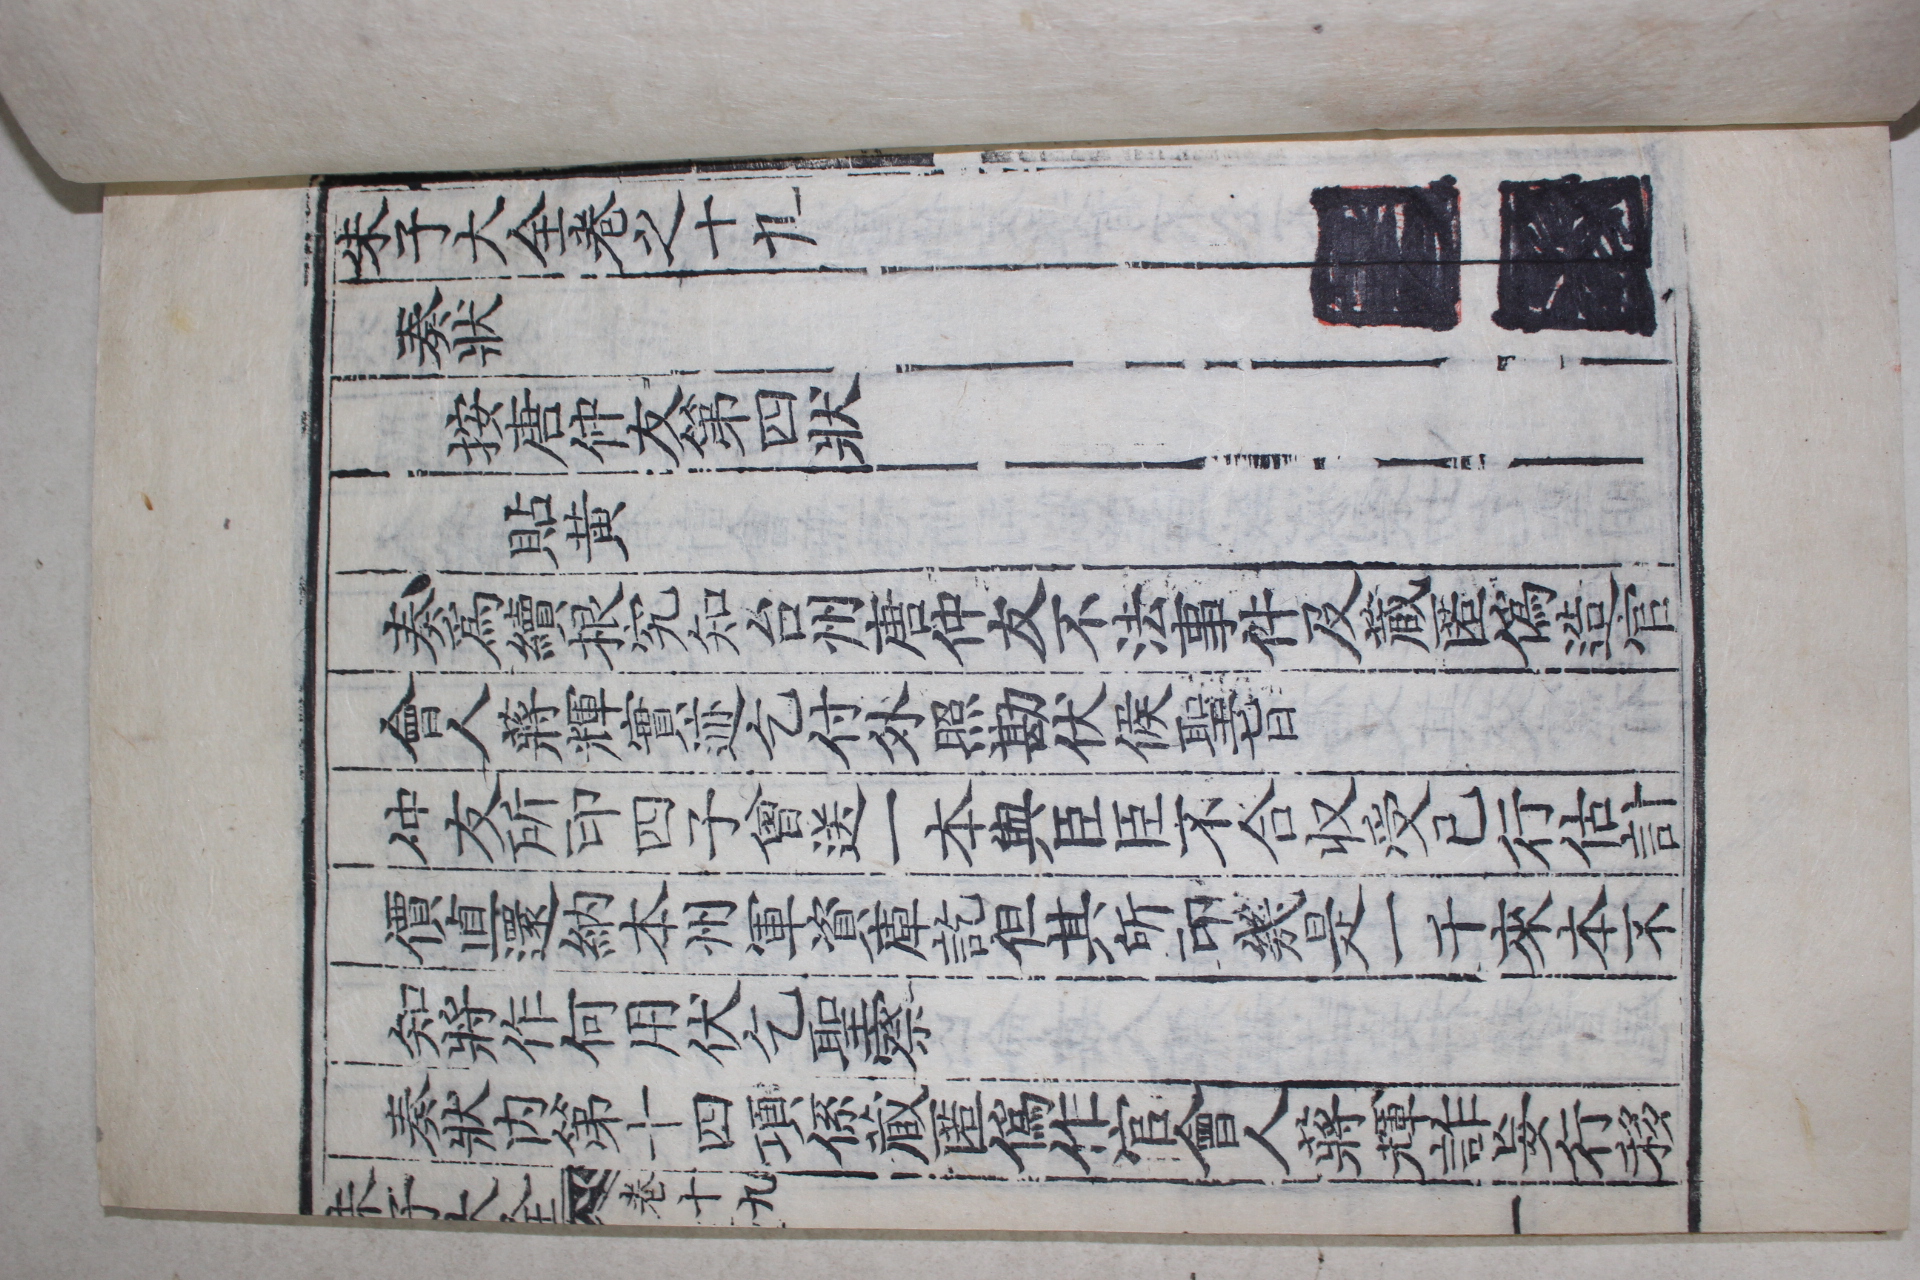 朱子大全卷之十九
奏狀
按唐仲友第四狀
貼黃
奏爲續根究知台州唐仲友不法事件及藏匿僞造官
會人蔣輝實迹乞付外照勘伏候聖旨
仲友所印四子曾送一本與臣臣不合收受已行估計
價直還納本州軍資庫訖但其所印幾是一千來本不
知將作何用伏乞聖察
奏狀内第十四項係藏匿僞作官會人蔣輝詐妄行移
朱子大全 卷十九 一